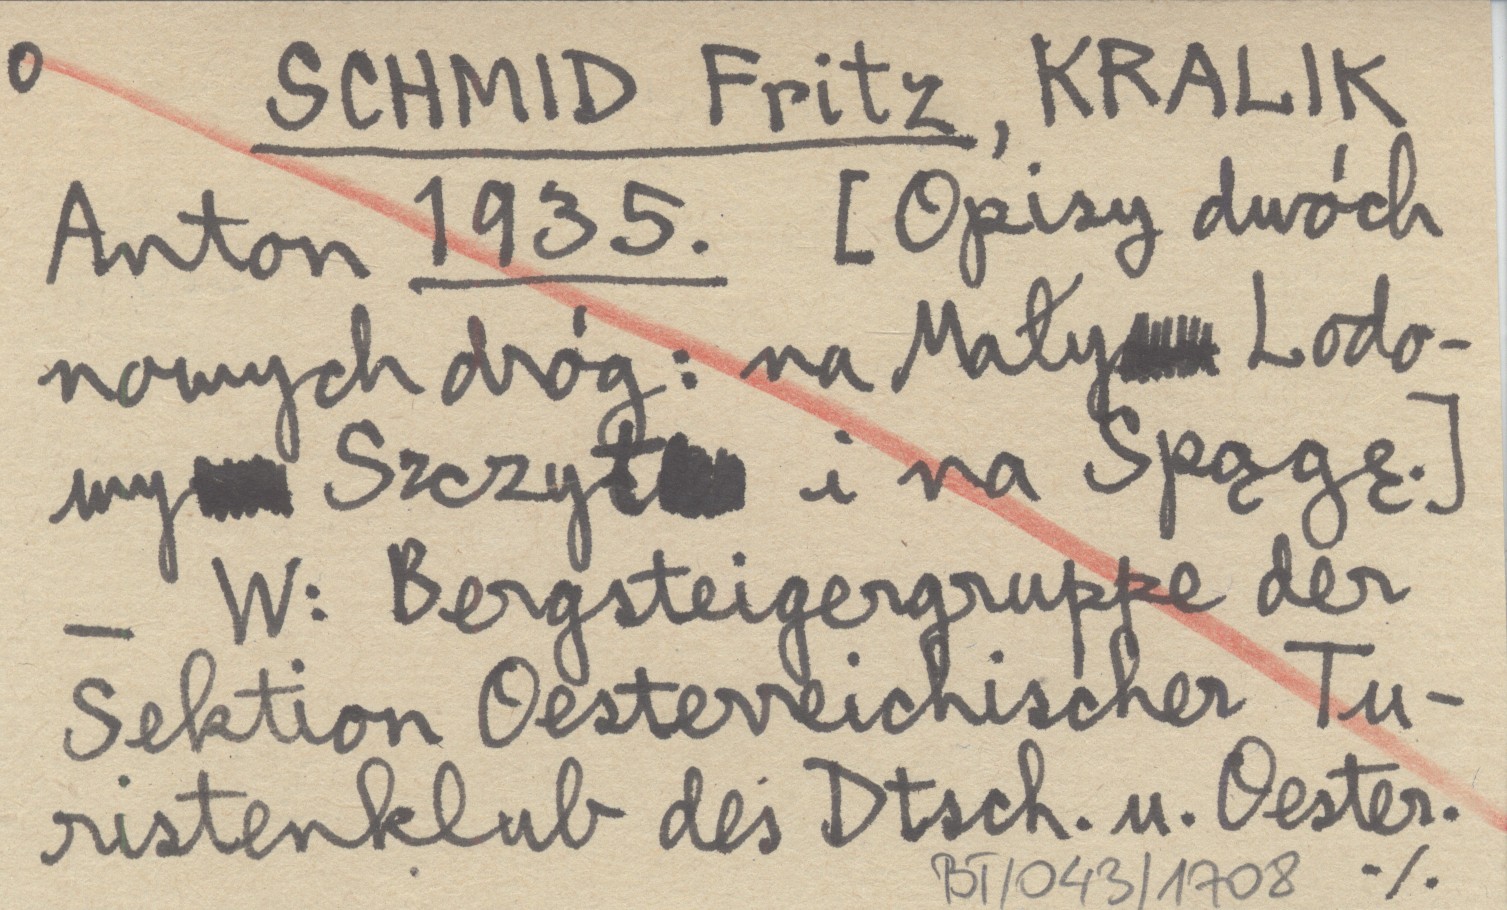 o SCHMID Fritz, KRALIK
Anton 1935. [Opisy dwóch
nowych dróg: na Mały Lodo-
wy Szczyt i na Spągę.]
— W: Bergsteigergruppe der
Sektion Oesterreichischer Tu-
ristenklub des Dtsch. u. Oester.
BT/043/1708 ·/.